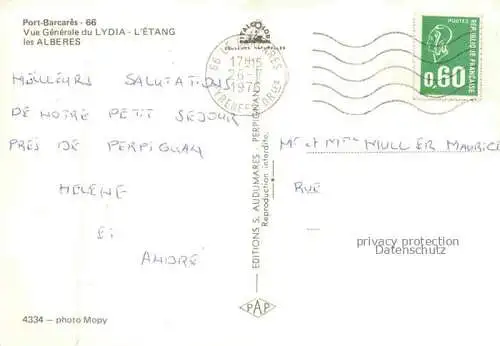 Port-Barcarès - 66
Vue Générale du LYDIA - L'ÉTANG
les ALBERES
MEILLEURS SALUTATIONS
DE NOTRE PETIT SEJOUR
PRES DE PERPIGNAN
HELENE
ET
ANDRÉ
4334 - photo Mopy
EDITIONS S. AUDUMARES - PERPIGNAN
Reproduction interdite.
PAP
17H15
1976
POSTES
REPUBLIQUE FRANCAISE
0,60
Mr et Mme MULLER MAURICE
RUE
privacy protection
oldthing.com